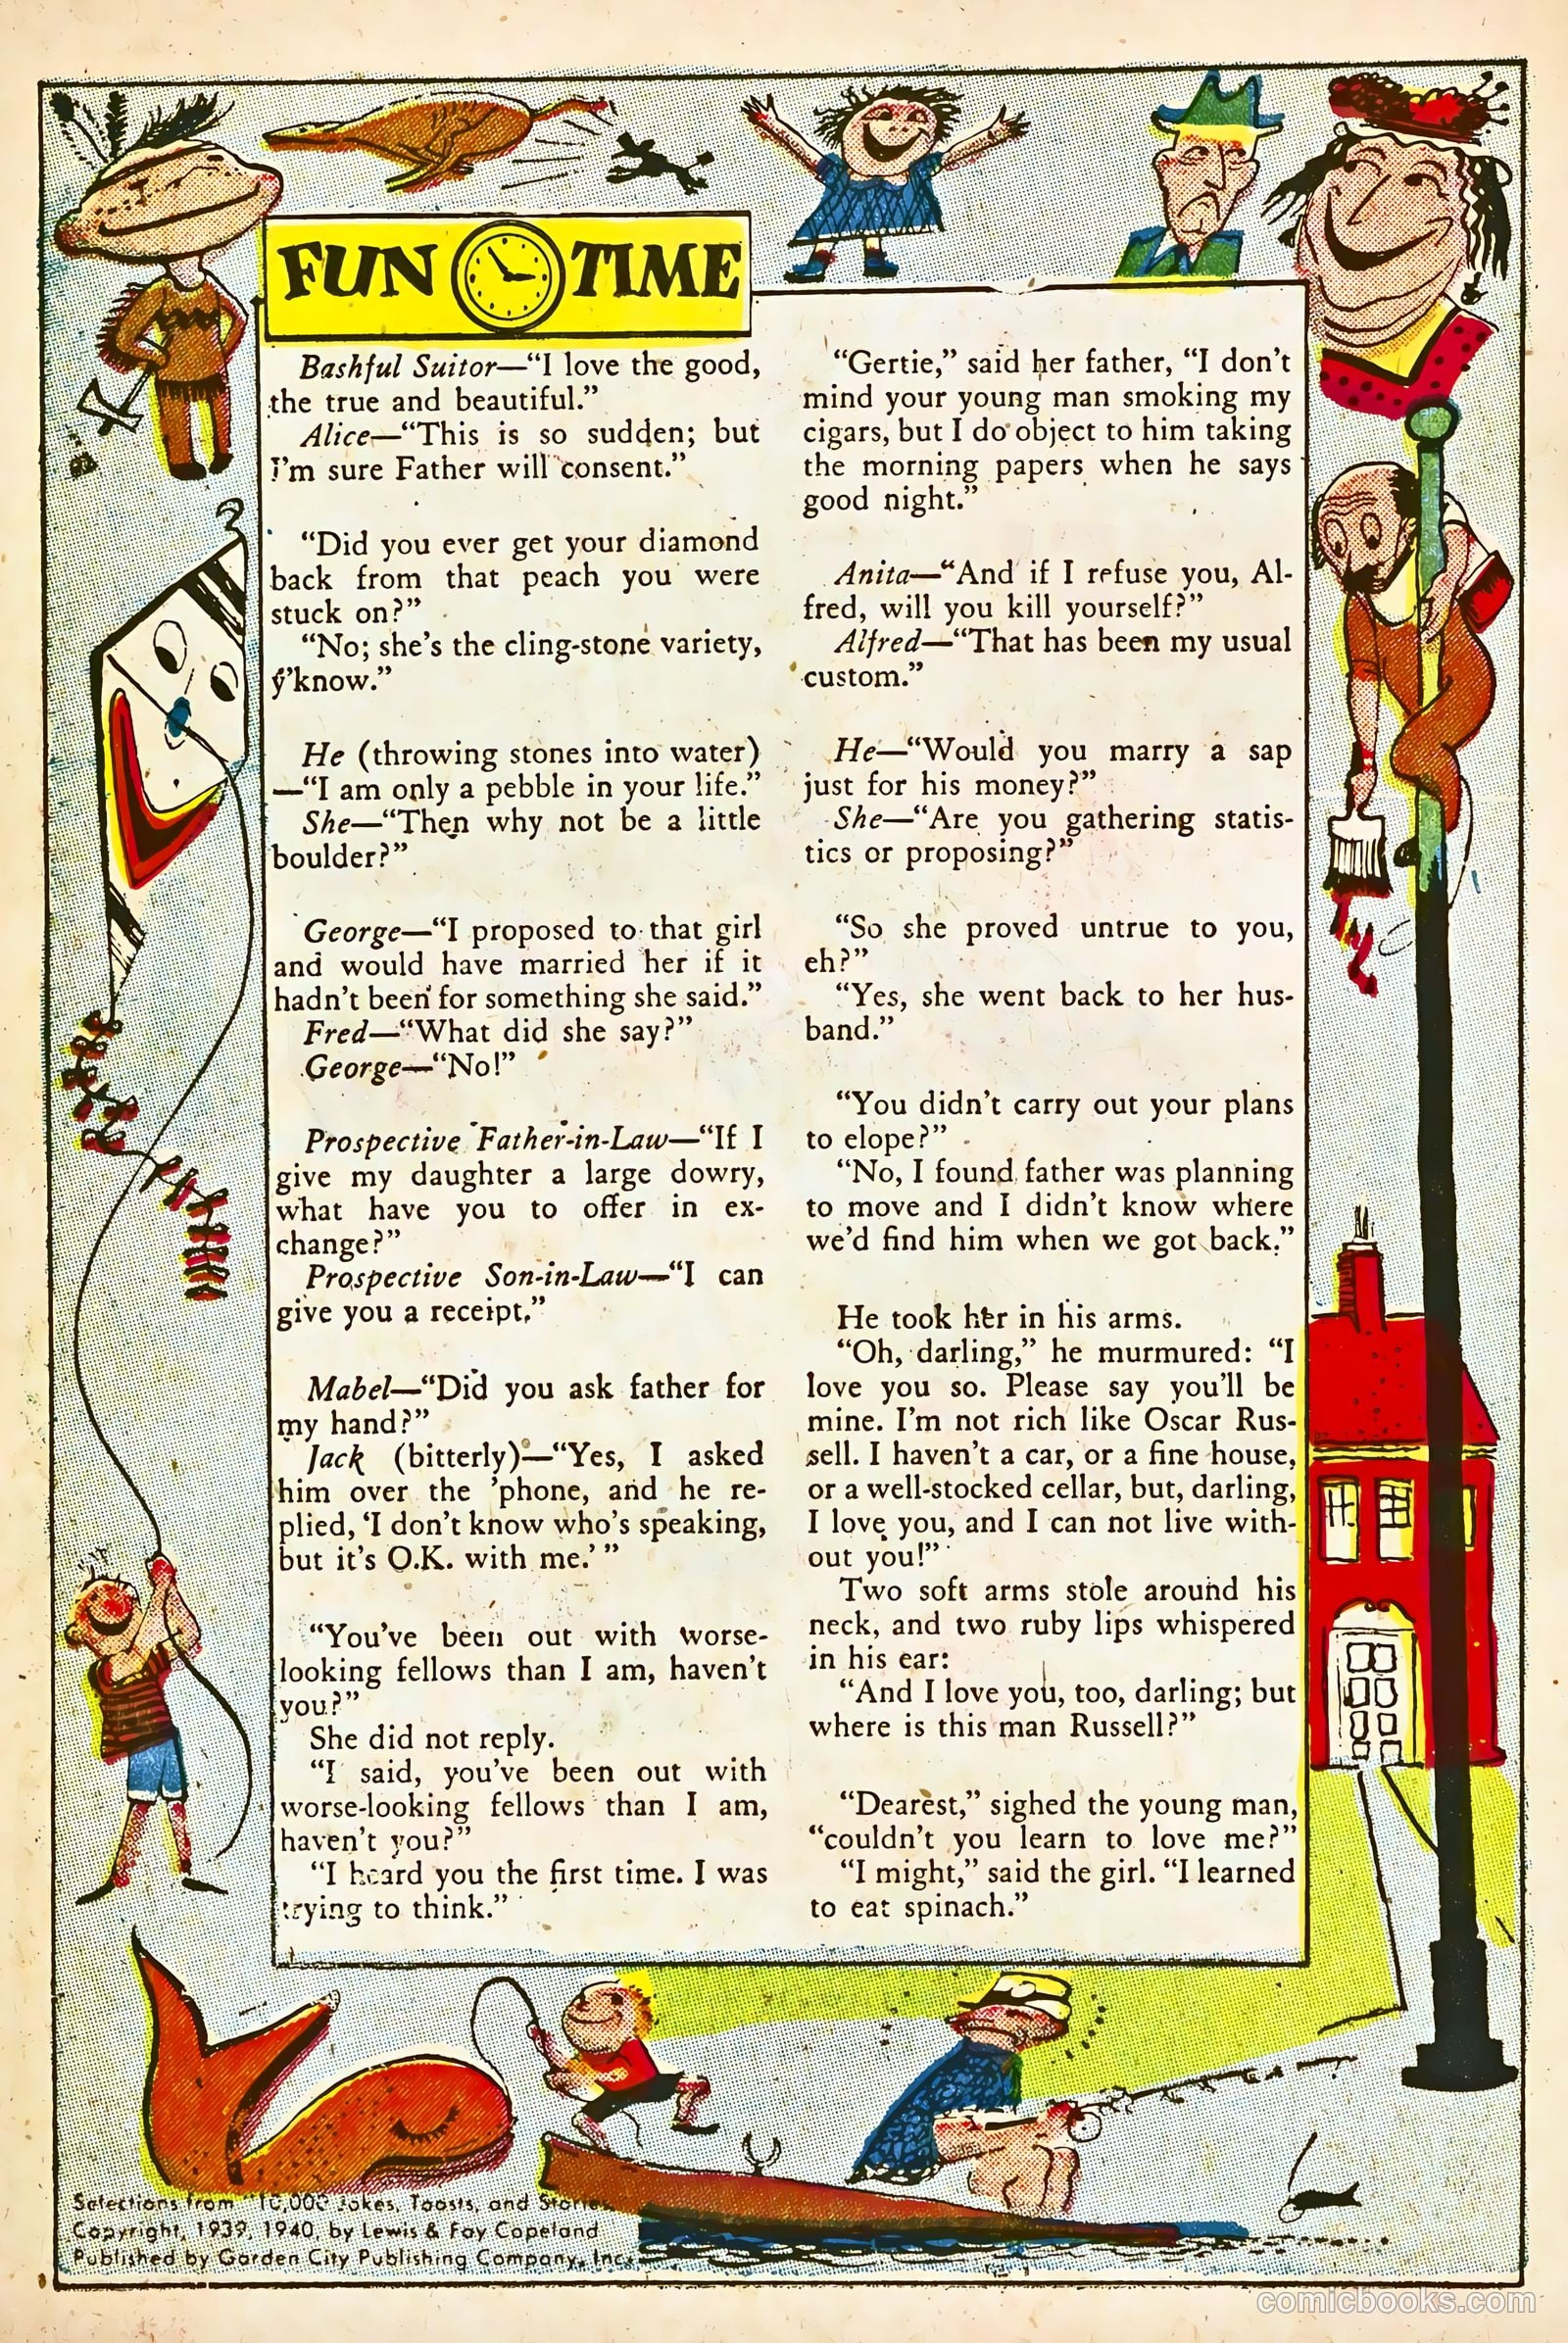 FUN TIME
Bashful Suitor—“I love the good,
the true and beautiful.”
Alice—“This is so sudden; but
I’m sure Father will consent.”
“Did you ever get your diamond
back from that peach you were
stuck on?”
“No; she’s the cling-stone variety,
y’know.”
He (throwing stones into water)
—“I am only a pebble in your life.”
She—“Then why not be a little
boulder?”
George—“I proposed to that girl
and would have married her if it
hadn’t been for something she said.”
Fred—“What did she say?”
George—“No!”
Prospective Father-in-Law—“If I
give my daughter a large dowry,
what have you to offer in ex-
change?”
Prospective Son-in-Law—“I can
give you a receipt.”
Mabel—“Did you ask father for
my hand?”
Jack (bitterly)—“Yes, I asked
him over the ’phone, and he re-
plied, ‘I don’t know who’s speaking,
but it’s O.K. with me.’ ”
“You’ve been out with worse-
looking fellows than I am, haven’t
you?”
She did not reply.
“I said, you’ve been out with
worse-looking fellows than I am,
haven’t you?”
“I heard you the first time. I was
trying to think.”
“Gertie,” said her father, “I don’t
mind your young man smoking my
cigars, but I do object to him taking
the morning papers when he says
good night.”
Anita—“And if I refuse you, Al-
fred, will you kill yourself?”
Alfred—“That has been my usual
custom.”
He—“Would you marry a sap
just for his money?”
She—“Are you gathering statis-
tics or proposing?”
“So she proved untrue to you,
eh?”
“Yes, she went back to her hus-
band.”
“You didn’t carry out your plans
to elope?”
“No, I found father was planning
to move and I didn’t know where
we’d find him when we got back.”
He took her in his arms.
“Oh, darling,” he murmured: “I
love you so. Please say you’ll be
mine. I’m not rich like Oscar Rus-
sell. I haven’t a car, or a fine house,
or a well-stocked cellar, but, darling,
I love you, and I can not live with-
out you!”
Two soft arms stole around his
neck, and two ruby lips whispered
in his ear:
“And I love you, too, darling; but
where is this man Russell?”
“Dearest,” sighed the young man,
“couldn’t you learn to love me?”
“I might,” said the girl. “I learned
to eat spinach.”
Selections from “10,000 Jokes, Toasts, and Stories
Copyright, 1939, 1940, by Lewis & Fay Copeland
Published by Garden City Publishing Company, Inc.
comicbooks.com